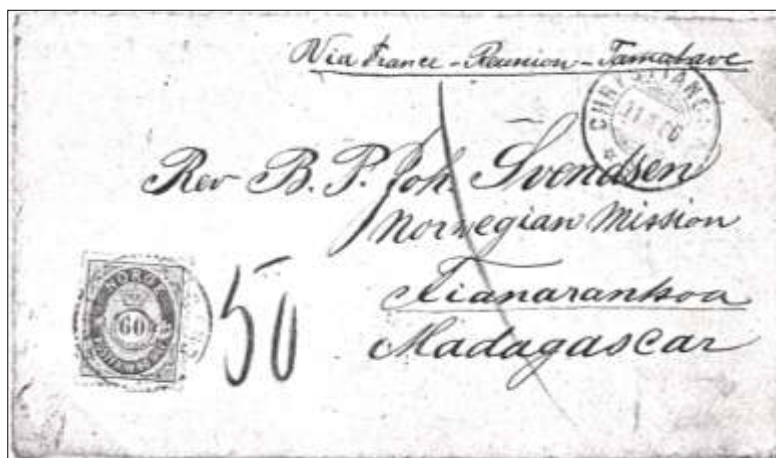 Via France - Reunion - Tamatave
CHRISTIANIA
Rev B. P. Joh. Svendsen
Norwegian Mission
Fianarantsoa
Madagascar
NORGE
60
50